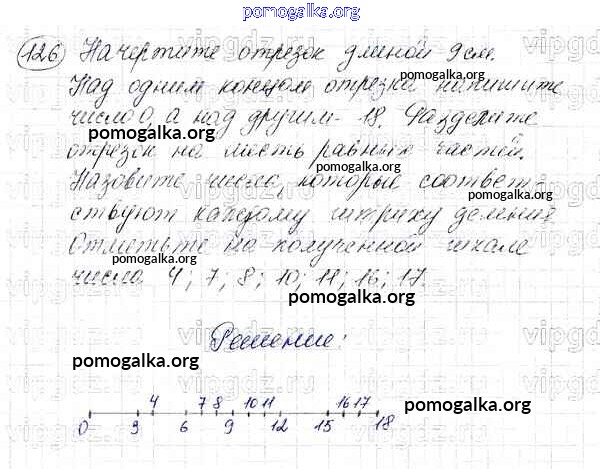 pomogalka.org
126 Начертите отрезок длиной 9 см.
Над одним концом отрезка напишите
pomogalka.org
число 0, а над другим - 18. Разделите
pomogalka.org
отрезок на шесть равных частей.
Назовите числа, которые соответ
pomogalka.org
ствуют каждому штриху деления.
Отметьте на полученной шкале
числа 4; 7; 8; 10; 11; 16; 17.
pomogalka.org
Решение:
pomogalka.org
4 7 8 10 11 16 17
pomogalka.org
0 3 6 9 12 15 18